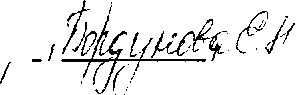 Бордунова Е.Н